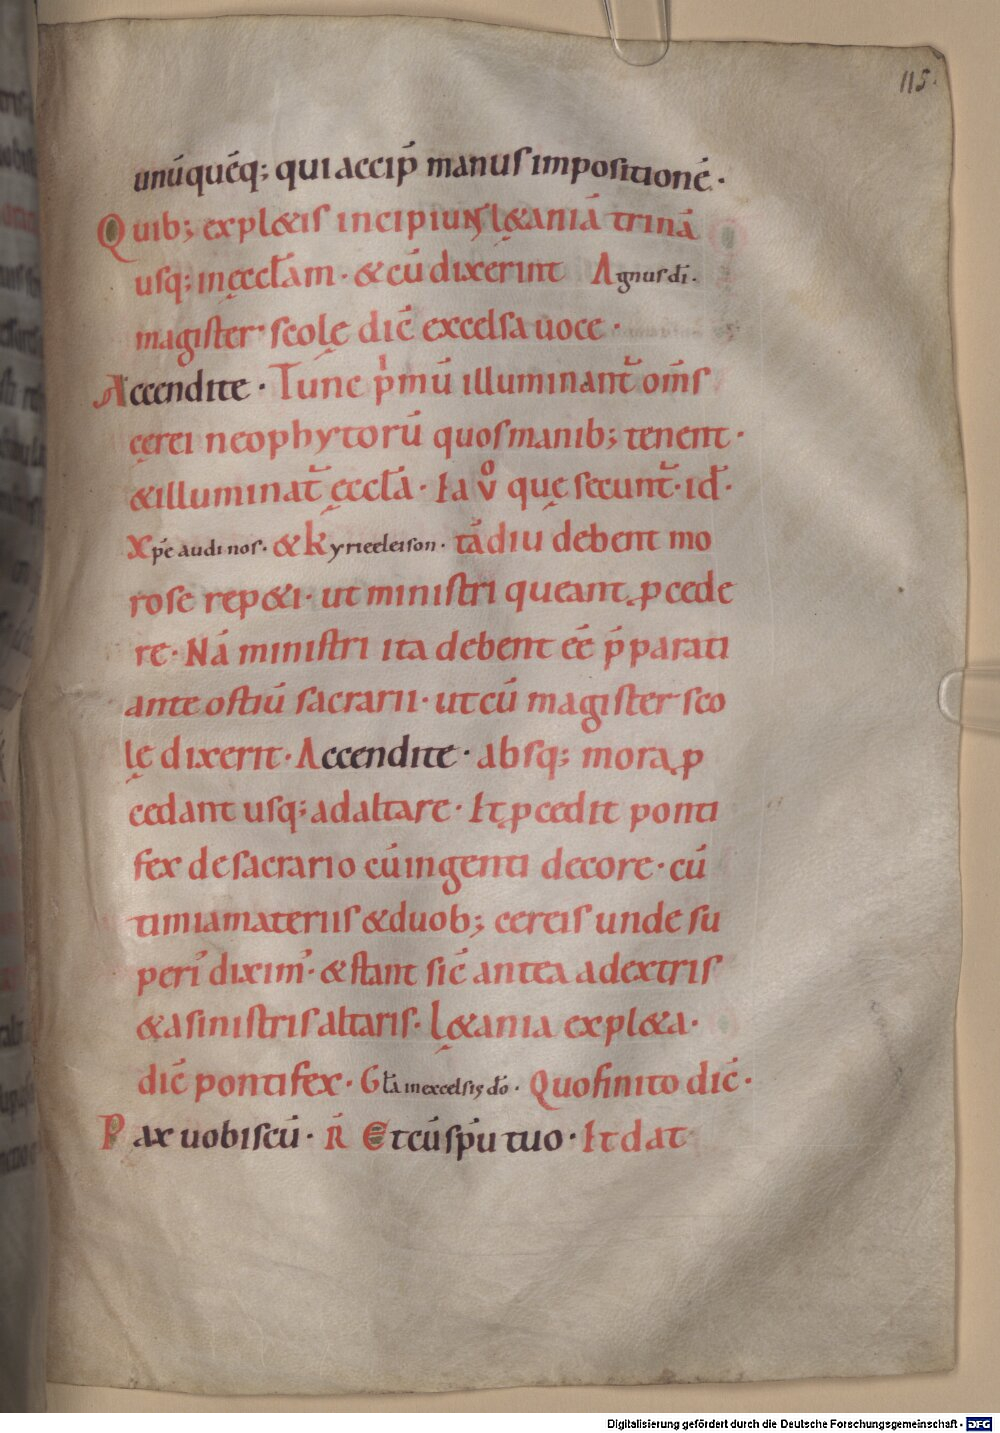 115.
unū́quēq; qui accip̄ manus impositionē.
Quib; expl&is incipiunt l&aniā trinā
usq; in ęccl̄am · & cū dixerint Agnus dī.
magister scolę dic̄ excelsa uoce ·
Accendite · Tunc pͥmū illuminant᷑ om̄s
cęrei neophytorū quos manib; tenent ·
& illuminat᷑ ęccl̄a · Ia vͦ quę secunt᷑ · id ·
Xp̄e audi nos · & kyrieeleison · tādiu debent mo
rose rep&i · ut ministri queant ꝓcede
re · Nā ministri ita debent eē p̄parati
ante ostiū sacrarii · ut cū magister sco
lę dixerit · Accendite · absq; mora ꝓ
cedant usq; ad altare · Et ꝓcedit ponti
fex de sacrario cū ingenti decore · cū
timiamateriis & duob; cereis unde su
peri᷑ dixim᷑ · & stant sic̄ antea a dextris
& a sinistris altaris · L&ania expl&a ·
dic̄ pontifex · Gl̄a in excelsis dō · Quo finito dic̄ ·
Pax uobiscū · R̄ Et cū sp̄u tuo · Et dat
Digitalisierung gefördert durch die Deutsche Forschungsgemeinschaft - DFG